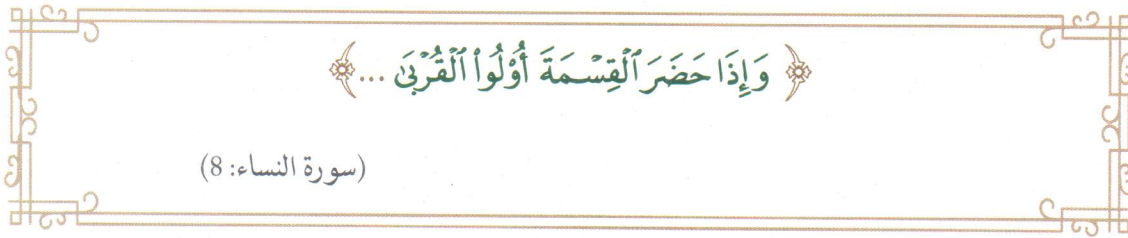 ﴿ وَإِذَا حَضَرَ ٱلْقِسْمَةَ أُوْلُواْ ٱلْقُرْبَىٰ ...﴾
(سورة النساء: 8)